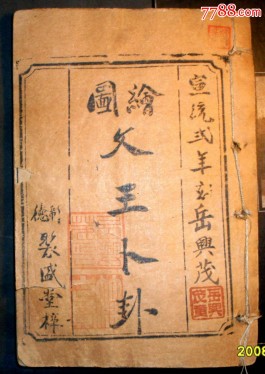 7788.com
宣統弍年刻岳興茂
繪圖
文王卜卦
聚盛堂梓
2008